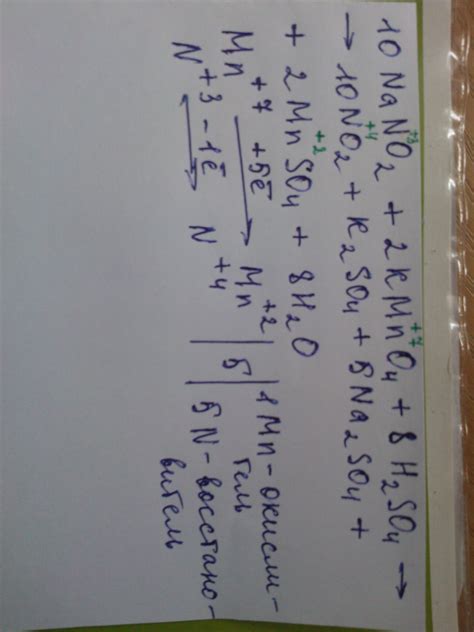 10NaN⁺³O₂ + 2KMn⁺⁷O₄ + 8H₂SO₄ →
→ 10N⁺⁴O₂ + K₂SO₄ + 5Na₂SO₄ +
+ 2Mn⁺²SO₄ + 8H₂O
Mn⁺⁷ +5ē → Mn⁺² | 5 | 1 Mn - окисли-
тель
N⁺³ - 1ē → N⁺⁴ | | 5 N - восстано-
витель